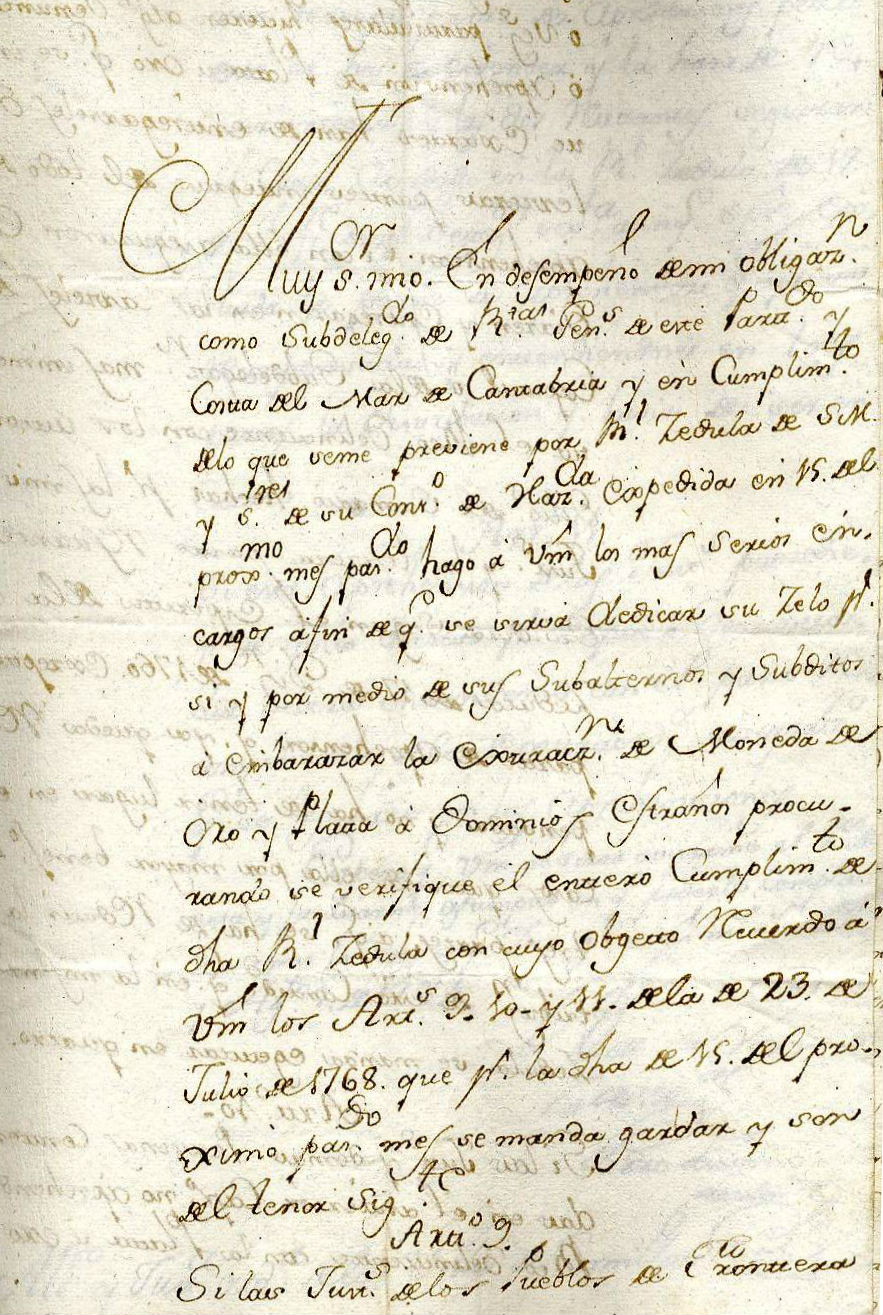 Muy S.or mio. En desempeño de mi obligaz.n
como Subdeleg.do de R.tas Gen.s de este Part.do y
Costa del Mar de Cantabria y en Cumplim.to
delo que seme previene por R.l Zedula de S.M.
y S.res de su Cons.o de Haz.da Expedida en 15. del
prox.mo mes pas.do hago à Vm̃ los mas serios en-
cargos afin de q.e se sirva dedicar su Zelo p.r
si y por medio de sus Subalternos y Subditos
à embarazar la Extracz.n de Moneda de
Oro y Plata à Dominios Estraños procu-
rando se verifique el entero Cumplim.to de
dha R.l Zedula con cuyo obgeto Recuerdo à
Vm̃ los Art.s 9. 10. y 11. dela de 23. de
Julio de 1768. que p.r la dha de 15. del pro-
ximo pas.do mes se manda gardar y son
del tenor sig.te
Arti.o 9.
Si las Just.s delos Pueblos de Frontera